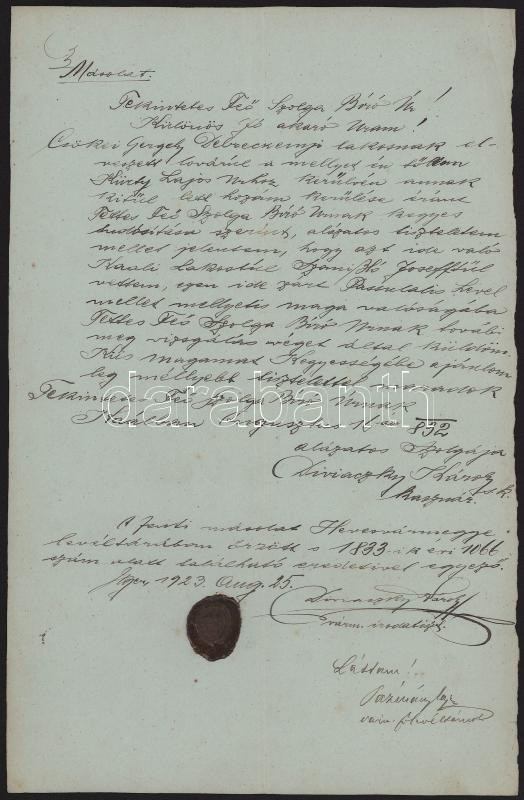 Másolat.
Tekintetes Fő Szolga Bíró Úr!
Különös jó akaró Uram!
Csőkei Gergely Debreczenyi lakosnak el-
veszett lovárúl a mellyet én tőllem
Kürty Lajos Úrhoz kerűlvén annak
kitűl lett hozám kerülése eránt
Tettes Fő Szolga Bíró Úrnak kegyes
tudósítása szerént, alázatos tiszteletem
mellet jelentem, hogy azt ide való
Kaali lakostúl Szaniszló Joseftűl
vettem, ezen ide zárt Passualis level
mellet mellyetis maga valóságába
Tettes Fő Szolga Bíró Úrnak továbi
meg vizsgálás véget által küldöm.
Kis magamat Kegyességébe ajánlom
leg méllyebb tisztelettel maradok
Tekintetes Fő Szolga Bíró Úrnak
Kaalban Augusztus 832
alázatos Szolgája
Diviaczky Károly s.k.
kasznár.
A fenti másolat Hevesvármegye
levéltárában őrzött s 1833-ik évi 1066
szám alatt található eredetivel egyező.
Eger, 1923. Aug. 25.
Diviaczky Károly
várm. irodatiszt.
Láttam!
várm. főlevéltárnok
darabanth